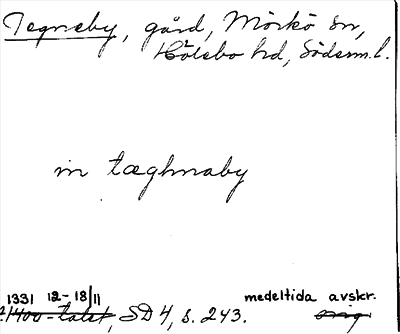 Tegneby, gård, Mörkö sn,
Hölebo hd, Söderm. l.
in tæghnaby
1331 12-18/11 medeltida avskr.
1400-talet, SD 4, s. 243. orig